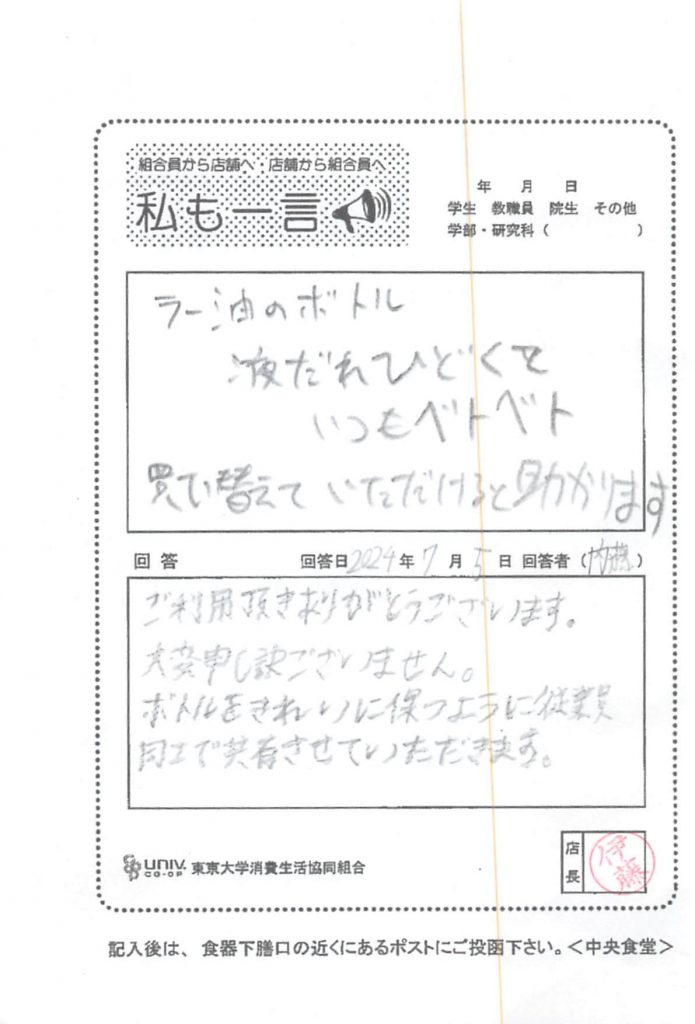 組合員から店舗へ・店舗から組合員へ
私も一言
年 月 日
学生 教職員 院生 その他
学部・研究科（ ）
ラー油のボトル
液だれひどくて
いつもベトベト
買い替えていただけると助かります
回答 回答日 2024年7月5日 回答者（ ）
ご利用頂きありがとうございます。
大変申し訳ございません。
ボトルをきれいに保つように従業員
同士で共有させていただきます。
UNIV. CO-OP 東京大学消費生活協同組合
店長 伊藤
記入後は、食器下膳口の近くにあるポストにご投函下さい。＜中央食堂＞